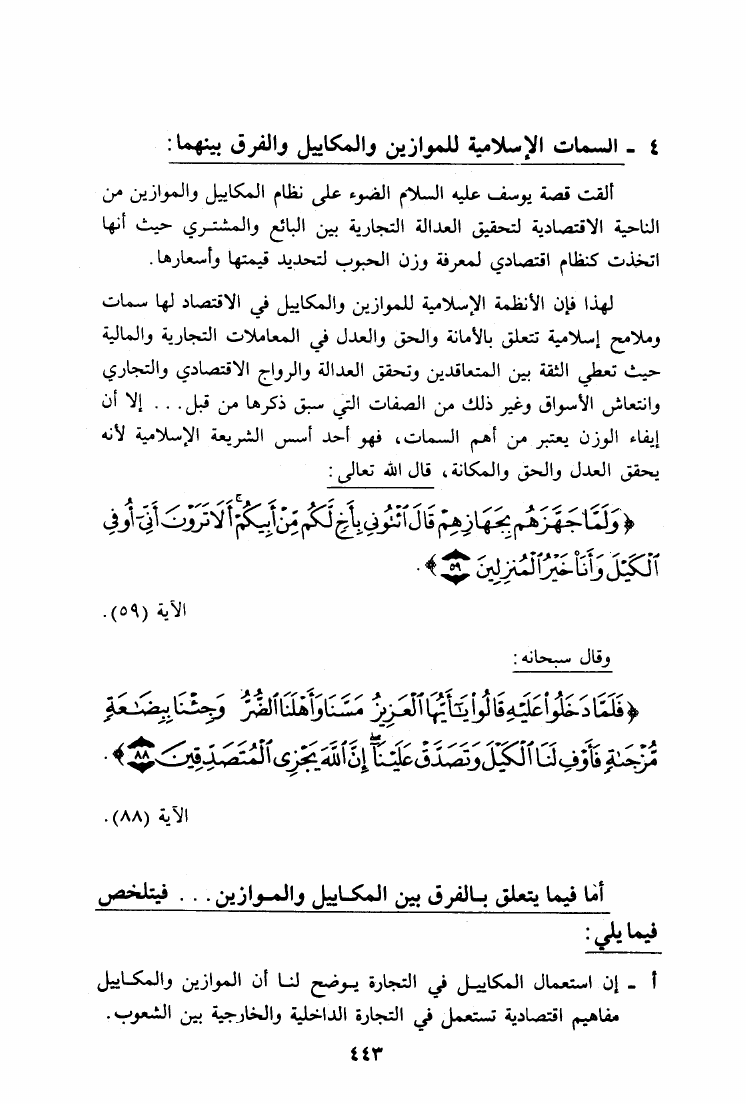 ٤ - السمات الإسلامية للموازين والمكاييل والفرق بينهما:
ألقت قصة يوسف عليه السلام الضوء على نظام المكاييل والموازين من
الناحية الاقتصادية لتحقيق العدالة التجارية بين البائع والمشتري حيث أنها
اتخذت كنظام اقتصادي لمعرفة وزن الحبوب لتحديد قيمتها وأسعارها.
لهذا فإن الأنظمة الإسلامية للموازين والمكاييل في الاقتصاد لها سمات
وملامح إسلامية تتعلق بالأمانة والحق والعدل في المعاملات التجارية والمالية
حيث تعطي الثقة بين المتعاقدين وتحقق العدالة والرواج الاقتصادي والتجاري
وانتعاش الأسواق وغير ذلك من الصفات التي سبق ذكرها من قبل... إلا أن
إيفاء الوزن يعتبر من أهم السمات، فهو أحد أسس الشريعة الإسلامية لأنه
يحقق العدل والحق والمكانة، قال الله تعالى:
﴿وَلَمَّا جَهَّزَهُم بِجَهَازِهِمْ قَالَ ٱئْتُونِي بِأَخٍ لَّكُم مِّنْ أَبِيكُمْ ۚ أَلَا تَرَوْنَ أَنِّىٓ أُوفِي
ٱلْكَيْلَ وَأَنَا۠ خَيْرُ ٱلْمُنزِلِينَ ٥٩﴾.
الآية (٥٩).
وقال سبحانه:
﴿فَلَمَّا دَخَلُوا۟ عَلَيْهِ قَالُوا۟ يَٰٓأَيُّهَا ٱلْعَزِيزُ مَسَّنَا وَأَهْلَنَا ٱلضُّرُّ وَجِئْنَا بِبِضَٰعَةٍ
مُّزْجَىٰةٍ فَأَوْفِ لَنَا ٱلْكَيْلَ وَتَصَدَّقْ عَلَيْنَآ ۖ إِنَّ ٱللَّهَ يَجْزِى ٱلْمُتَصَدِّقِينَ ٨٨﴾.
الآية (٨٨).
أما فيما يتعلق بالفرق بين المكاييل والموازين... فيتلخص
فيما يلي:
أ - إن استعمال المكاييل في التجارة يوضح لنا أن الموازين والمكاييل
مفاهيم اقتصادية تستعمل في التجارة الداخلية والخارجية بين الشعوب.
٤٤٣